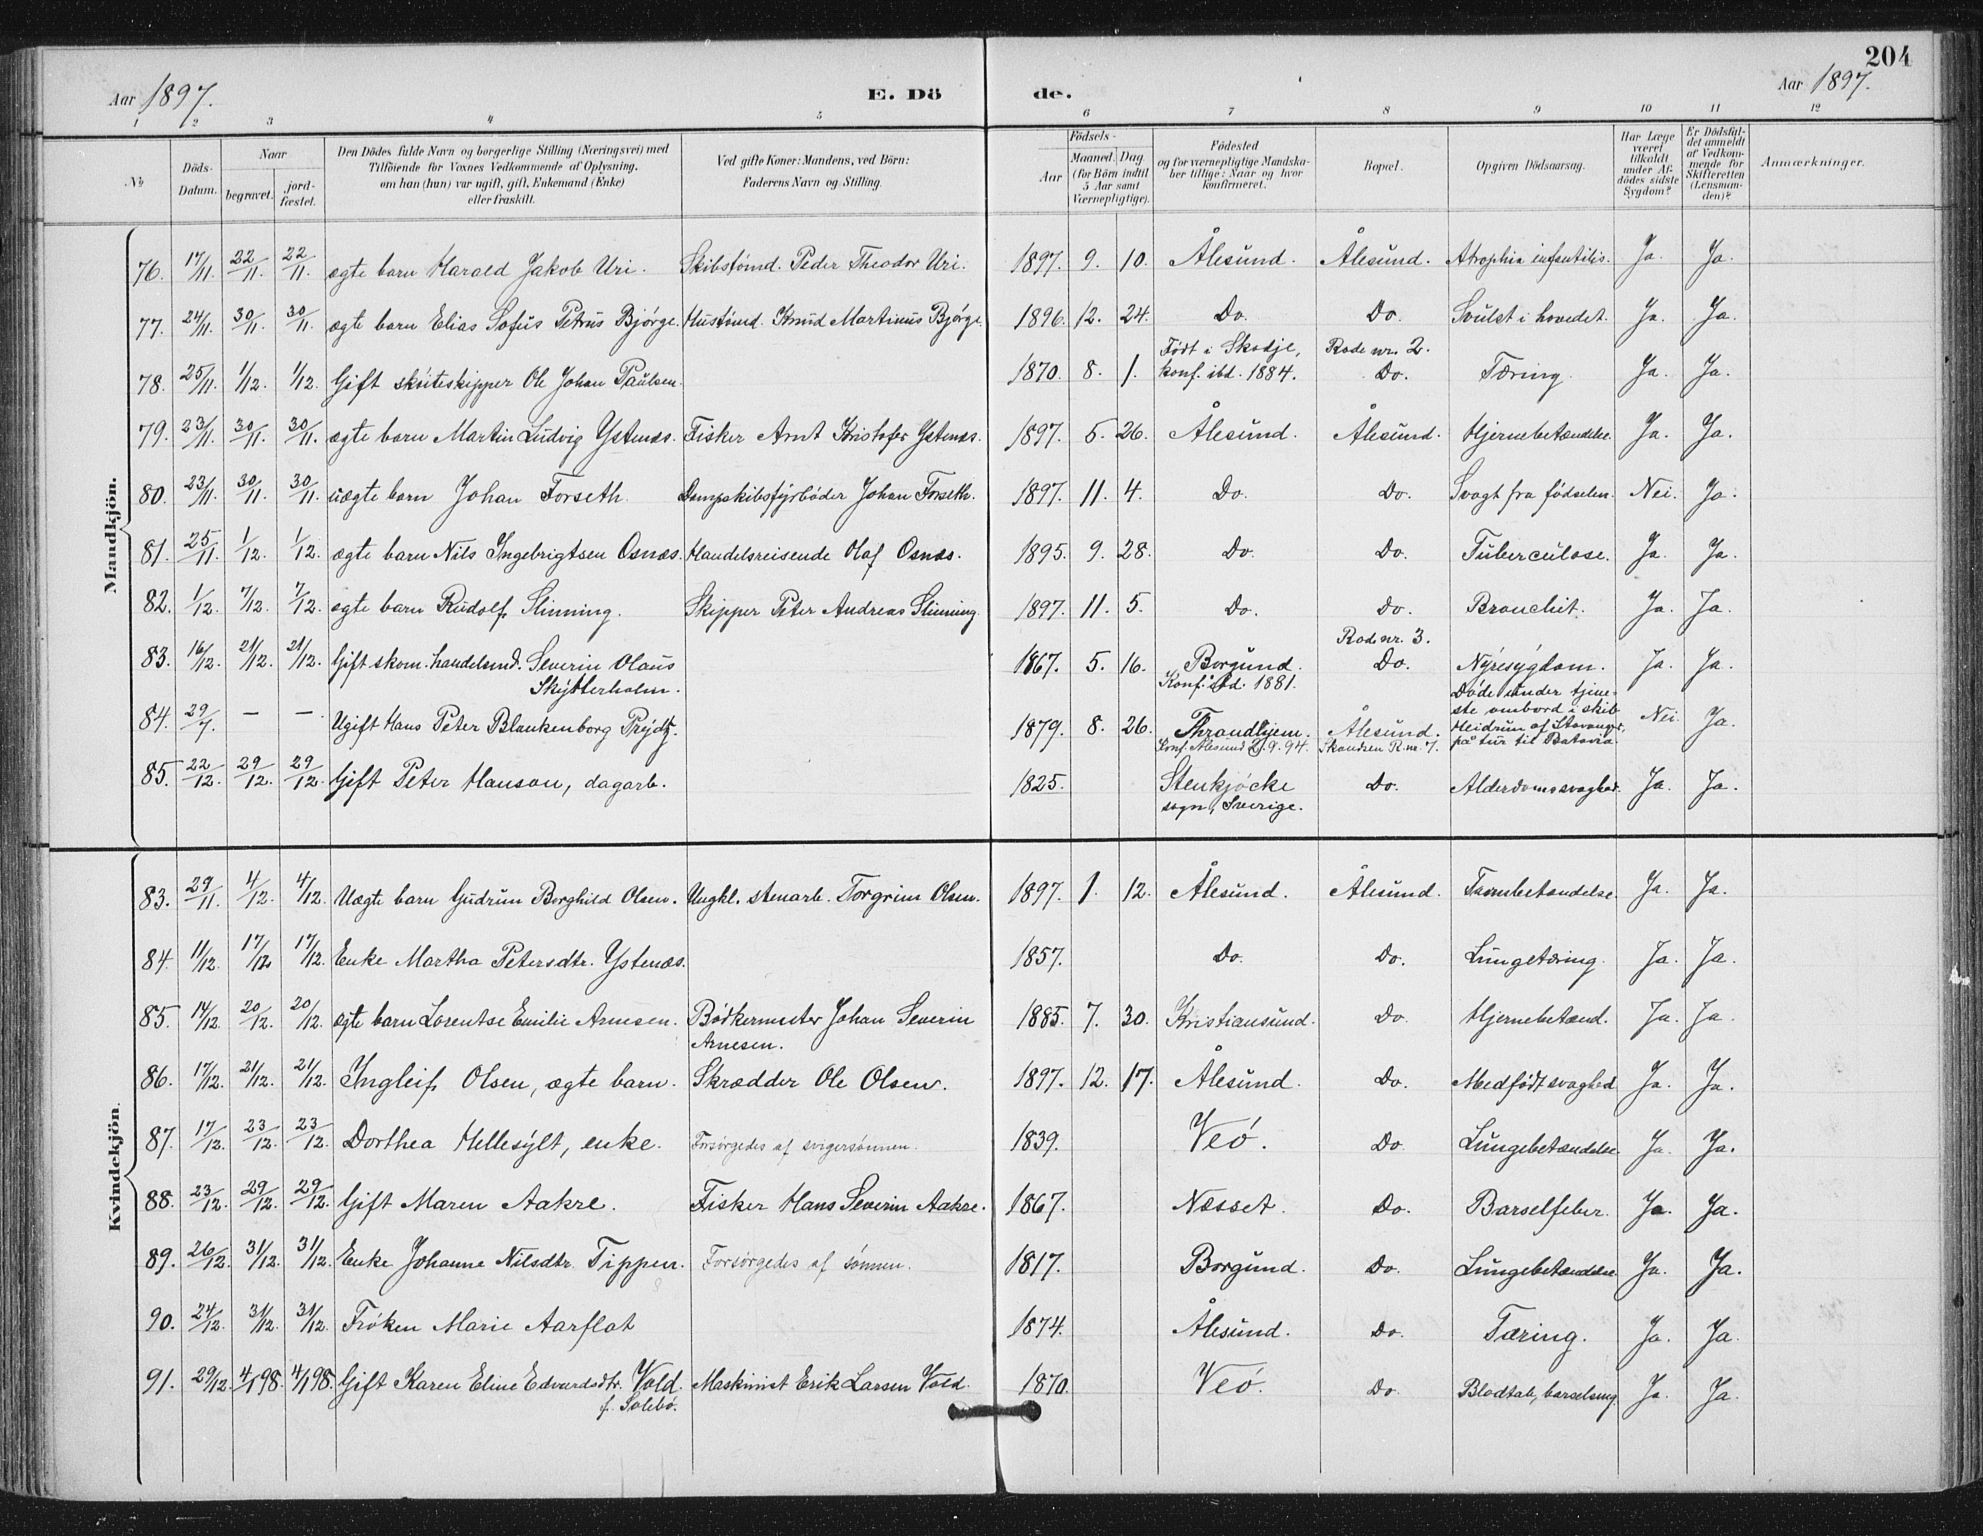 204
Aar 1897. E. Dö de. Aar 1897.
1 2 3 4 5 6 7 8 9 10 11 12
No Döds-Datum. Naar begravet. jord-fæstet. Den Dödes fulde Navn og borgerlige Stilling (Næringsvei) med Tilföiende for Voxnes Vedkommende af Oplysning, om han (hun) var ugift, gift, Enkemand (Enke) eller fraskilt. Ved gifte Koner: Mandens, ved Börn: Faderens Navn og Stilling. Födsels- Aar Maaned. Dag. (for Börn indtil 5 Aar samt Værnepligtige). Födested og for værnepligtige Mandska-ber tillige: Naar og hvor konfirmeret. Bopæl. Opgiven Dödsaarsag. Har Læge været tilkaldt under Af-dödes sidste Sygdom? Er Dödsfal-det anmeldt af Vedkom-mende for Skifteretten (Lensman-den)? Anmærkninger.
Mandkjön.
76. 17/11. 22/11. 22/11. ægte barn Harald Jakob Uri. Skibstømd. Peder Theodor Uri. 1897. 9. 10. Ålesund. Ålesund. Atrophia infantilis. Ja. Ja.
77. 24/11. 30/11. 30/11. ægte barn Elias Sofus Petrus Bjørge. Hustømd. Knud Martinus Bjørge. 1896. 12. 24. Do. Do. Svulst i hovedet. Ja. Ja.
78. 25/11. 1/12. 1/12. Gift skøiteskipper Ole Johan Paulsen. 1870. 8. 1. Født i Skodje, konf. ibd. 1884. Rode nr. 2. Do. Tæring. Ja. Ja.
79. 23/11. 30/11. 30/11. ægte barn Martin Ludvig Ystenæs. Fisker Arnt Kristofer Ystenæs. 1897. 5. 26. Ålesund. Ålesund. Hjernebetændelse. Ja. Ja.
80. 23/11. 30/11. 30/11. uægte barn Johan Forseth. Dampskibsfyrbøder Johan Forseth. 1897. 11. 4. Do. Do. Svagt fra fødselen. Nei. Ja.
81. 25/11. 1/12. 1/12. ægte barn Nils Ingebrigtsen Osnæs. Handelsreisende Olaf Osnæs. 1895. 9. 28. Do. Do. Tuberculose. Ja. Ja.
82. 1/12. 7/12. 7/12. ægte barn Rudolf Slinning. Skipper Peter Andreas Slinning 1897. 11. 5. Do. Do. Bronchit. Ja. Ja.
83. 16/12. 21/12. 21/12. Gift skom. handelsmd. Severin Olaus Skytterholm. 1867. 5. 16. Borgund. Konf. ibd. 1881. Rode nr. 3. Do. Nyresygdom. Ja. Ja.
84. 29/7. — — Ugift Hans Peter Blankenborg Prydz. 1879. 8. 26. Throndhjem. Konf. Ålesund 9. 94. Ålesund. Skandsen R. nr. 7. Døde under tjene-ste ombord i skib Heidrum af Stavanger, på tur til Batavia. Nei. Ja.
85. 22/12. 29/12. 29/12. Gift Peter Hanson, dagarb. 1825. Stenkjöcke sogn, Sverige. Do. Alderdomssvaghed. Ja. Ja.
Kvindekjön.
83. 29/11. 4/12. 4/12. Uægte barn Gudrun Borghild Olsen. Ungkl. stenarb. Torgrim Olsen. 1897. 1. 12. Ålesund. Ålesund. Tarmbetændelse. Ja. Ja.
84. 11/12. 17/12 17/12. Enke Martha Petersdtr. Ystenæs. 1857. Do. Do. Lungetæring. Ja. Ja.
85. 14/12. 20/12. 20/12. Ægte barn Lorentse Emilie Arnesen. Bødkermester Johan Severin Arnesen. 1885. 7. 30. Kristiansund. Do. Hjernebetænd. Ja. Ja.
86. 17/12. 21/12. 21/12. Ingleif Olsen, ægte barn. Skrædder Ole Olsen. 1897. 12. 17. Ålesund. Do. Medfødt svaghed Ja. Ja.
87. 17/12. 23/12. 23/12. Dorthea Hellesylt, enke. Forsørgedes af svigersønnen. 1839. Veø. Do. Lungebetændelse Ja. Ja.
88. 23/12. 29/12. 29/12. Gift Maren Aakre. Fisker Hans Severin Aakre. 1867. Næsset. Do. Barselfeber. Ja. Ja.
89. 26/12. 31/12. 31/12. Enke Johanne Nilsdtr. Tippen. Forsørgedes af sønnen. 1817. Borgund. Do. Lungebetændelse. Ja. Ja.
90. 24/12. 31/12. 31/12. Frøken Marie Aarflot 1874. Ålesund. Do. Tæring. Ja. Ja.
91. 29/12. 4/1 98. 4/1 98. Gift Karen Eline Edvardsdtr. Vold. f. Solebø. Maskinist Erik Larsen Vold. 1870. Veø. Do. Blodtab, barselseng. Ja. Ja.